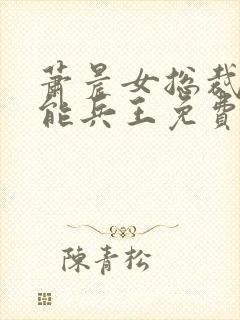 蕭晨女總裁
能兵王免費
陳青松